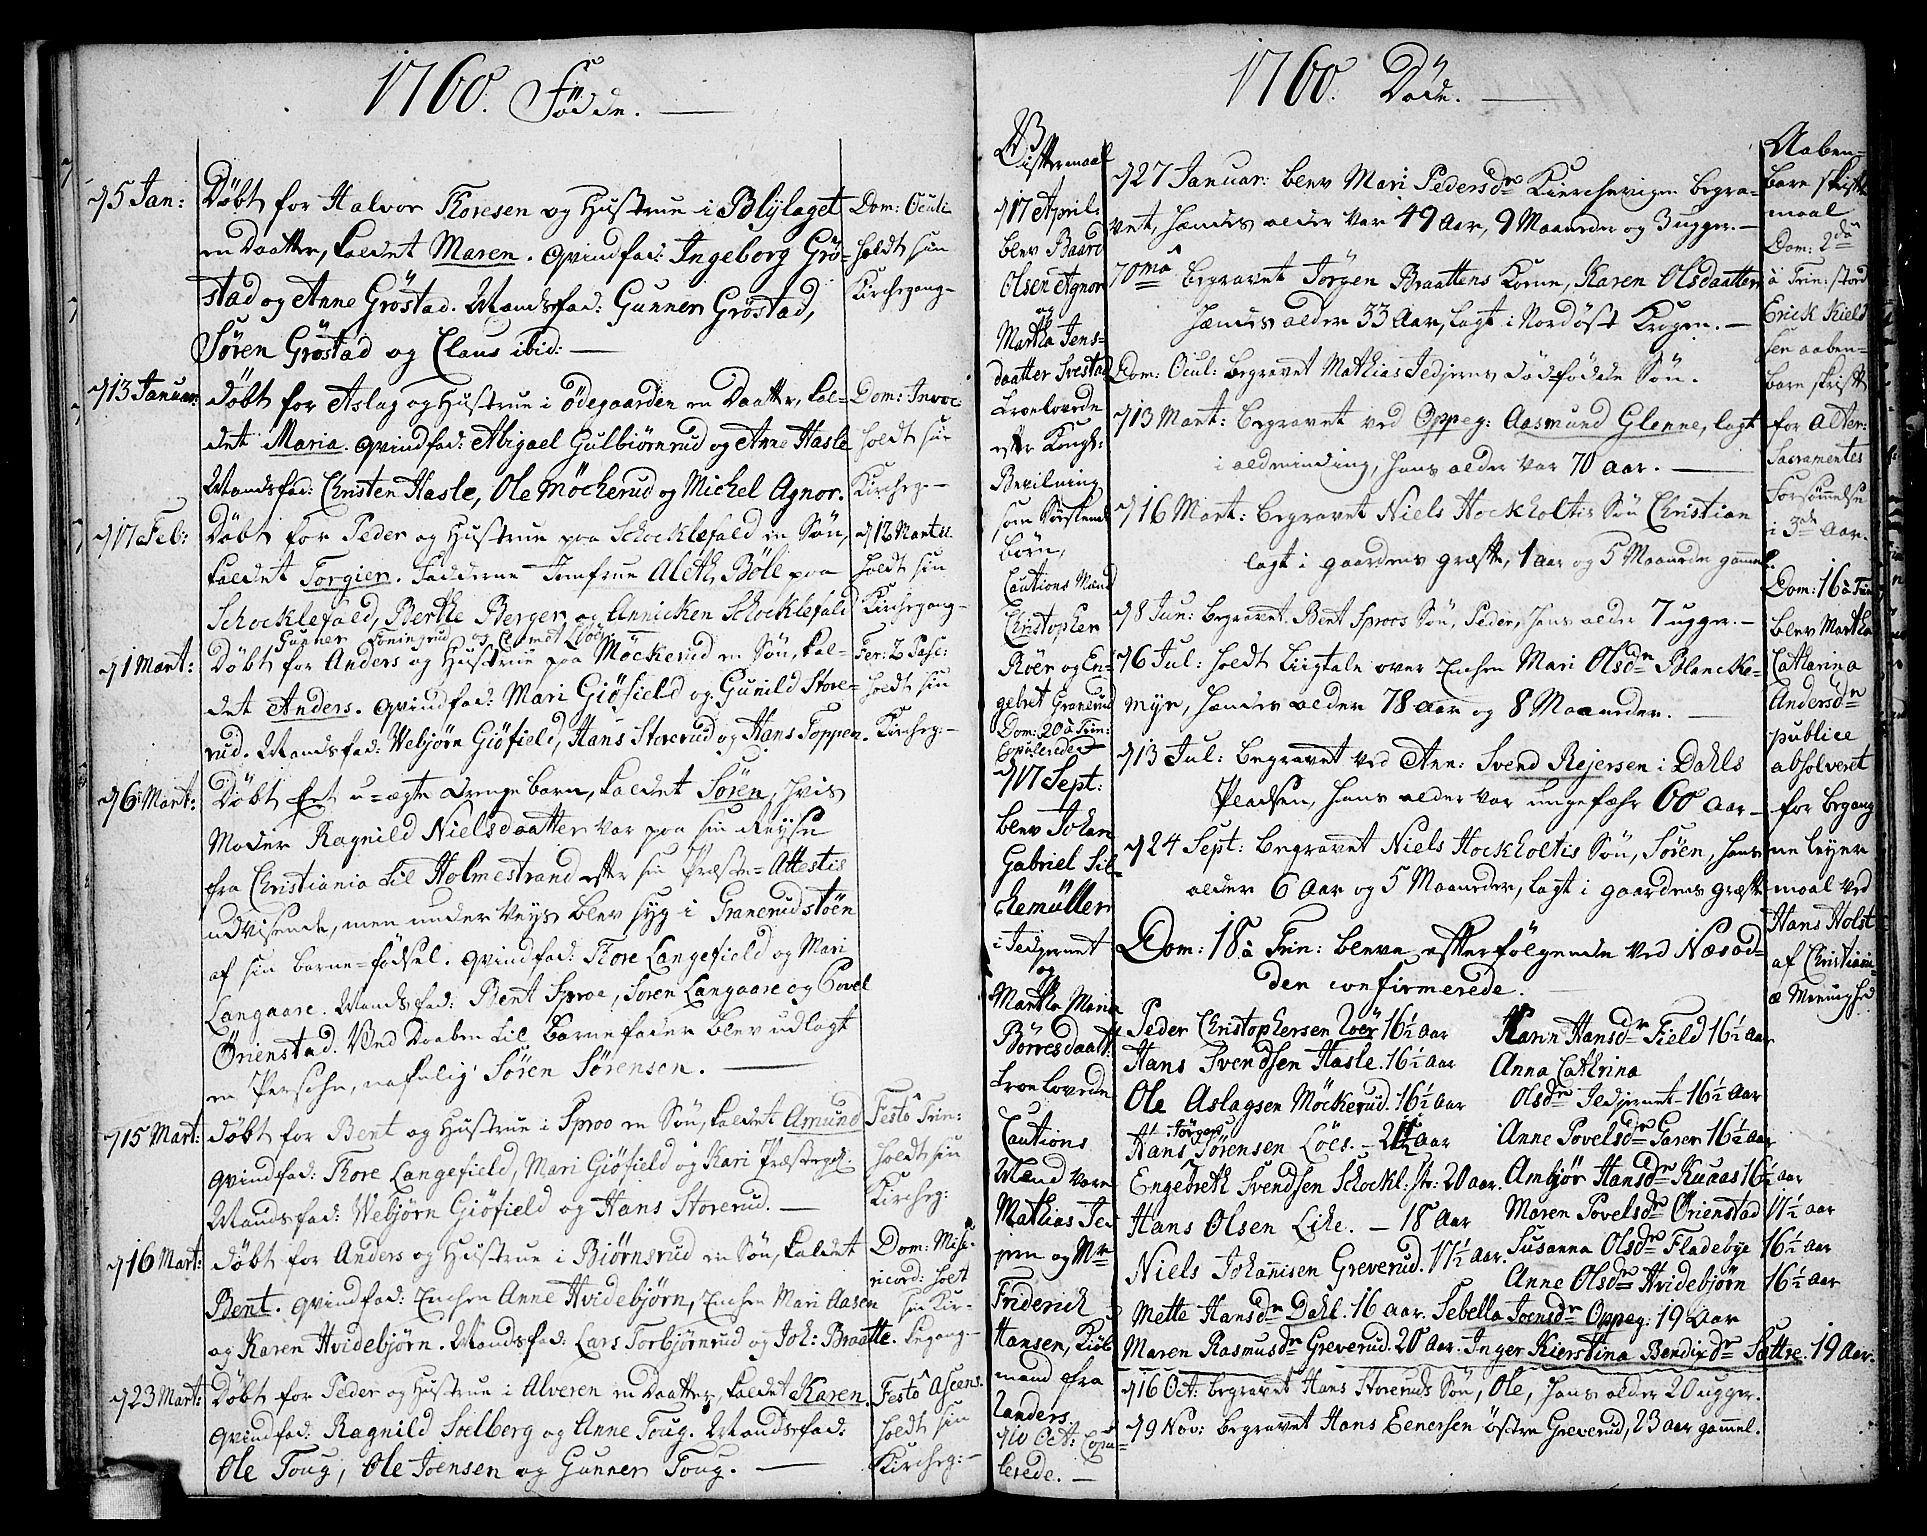 1760. Födde.
d 5 Jan:
Döbt for Halvor Thoresen og Hustrue i Blylaget
en Daatter, kaldet Maren. Qvindfad: Ingeborg Grö-
stad og Anne Gröstad. Mandsfad: Gunner Gröstad,
Sören Gröstad og Claus ibid:
Dom: Oculi
holdt sin
Kirchegang
d 13 Januar:
Döbt for Aslag og Hustrue i Ödegaarden en Daatter, kal-
det Maria. Qvindfad: Abigael Gulbiörnrud og Anne Hasle
Mandsfad: Christen Hasle, Ole Möcherud og Michel Agnor.
Dom: Invoc:
holdt sin
Kircheg:
d 17 Feb:
Döbt for Peder og Hustrue paa Schocklefald en Sön,
kaldet Torgier. Fadderne Jomfrue Aleth Böll paa
Schocklefald, Berthe Berger og Annicken Schocklefald
Gunner Toningrud og Clemet Löes
d 12 Martii
holdt sin
Kirchegang
d 1 Mart:
Döbt for Anders og Hustrue paa Möckerud en Sön, kal-
det Anders. Qvindfad: Mari Giöfield og Gunild Store-
rud. Mandsfad: Vebjörn Giöfield, Hans Storerud og Hans Toppen.
Fer: 2 Pasc:
holdt sin
Kircheg:
d 6 Mart:
Döbt Et u-ægte Drenge barn, kaldet Sören, hvis
Moder Ragnild Nielsdaatter var paa sin Reyse
fra Christiania til Holmestrand efter sin Præste-Attestis
udvisende, men under veys blev syg i Granerudstöen
af sin barne-födsel. Qvindfad: Thore Langefield og Mari
Langaare. Mandsfad: Bent Sproe, Sören Langaare og Povel
Örienstad. Ved Daaben til Barnefader blev udlagt
en Persohn, nafnlig Sören Sörensen.
d 15 Mart:
Döbt for Bent og Hustrue i Sproo en Sön, kaldet Amund
Qvindfad: Thore Langefield, Mari Giöfield og Kari Præstegd:
Mandsfad: Vebjörn Giöfield og Hans Storerud.
Festo Trin:
holdt sin
Kircheg:
d 16 Mart:
Döbt for Anders og Hustrue i Biörnsrud en Sön, kaldet
Bent. Qvindfad: Enchen Anne Hvidebjörn, Enchen Mari Aasen
og Karen Hvidebjörn. Mandsfad: Lars Torbjörnrud og Joh: Braatte.
Dom: Mise-
ricord: holt
sin Kir-
kegang
d 23 Mart:
Döbt for Peder og Hustrue i Alveren en Daatter, kaldet Karen.
Qvindfad: Ragnild Soelberg og Anne Toug. Mandsfad:
Ole Toug, Ole Joensen og Gunner Toug.
Festo Ascens:
holdt sin
Kircheg:
1760. Döde.
Vistermaal
d 17 April:
blev Baard
Olsen Agnor
og
Martha Jens-
daatter Svestad
troelovede
efter Kongl:
Bevilning
som Sörskende
börn,
Cautions Mænd
Christopher
Röer og En-
gebret Granerud
Dom: 20 à Trin:
Copulerede
d 17 Sept:
blev Johan
Gabriel Sil-
chemüller
i Tedjernet
og
Martha Maria
Börresdaatt:
troelovede
Cautions
Mænd vare
Mathias Ted-
jern og Mr
Friderich
Hansen, Kiöb
mand fra
Randers
d 10 Oct: Copu-
lerede.
d 27 Januar: blev Mari Pedersdr Kierchevigen begra-
vet, hændes alder var 49 Aar, 9 Maaneder og 3 ugger.
70ma begravet Jörgen Braattens Kone, Karen Olsdaatter
hændes alder 33 Aar, lagt i Nordöst Krogen.
Dom: Ocul: begravet Mathias Tedjerns dödfödde Sön.
d 13 Mart: begravet ved Oppeg: Aasmund Glenne, lagt
i aldminding, hans alder var 70 aar.
d 16 Mart: begravet Niels Hockholtis Sön Christian
lagt i gaardens græft, 1 aar og 5 Maaneder gammel.
d 8 Jun: begravet Bent Sproos Sön, Peder, hans alder 7 ugger.
d 6 Jul: holdt Liigtale over Enchen Mari Olsdr Blancke-
myr, hendes alder 78 aar og 8 Maaneder.
d 13 Jul: begravet ved Ann: Svend Rejersen i Dahls
Pladsen, hans alder var ungefæhr 60 aar
d 24 Sept: begravet Niels Hockholtis Sön, Sören, hans
alder 6 Aar og 5 Maaneder, lagt i gaardens græft
Dom: 18 à Trin: bleve efterfölgende ved Næsod-
den confirmerede.
Peder Christophersen Röer 16½ Aar
Hans Svendsen Hasle. 16½ Aar
Ole Aslagsen Möckerud. 16½ Aar
Jörgen
Hans Sörensen Löes. Aar
Engebreth Svendsen Schockl: str: 20 aar.
Hans Olsen Lihe. 18 Aar
Niels Johannisen Greverud. 17½ aar.
Karin Hansdr Field 16½ Aar
Anna Cathrina
Olsdr Tedjernet 16½ Aar
Anne Povelsdr Garer 16½ Aar
Ambjör Hansdr Kuaas 16½ aar
Maren Povelsdr Örienstad 17½ aar
Susanna Olsdr Fladebye 16½ aar
Anne Olsdr Hvidebjörn 16½ aar
Mette Hansdr Dahl. 16 aar. Sebella Joensdr Oppeg: 19 Aar
Maren Rasmusdr Greverud. 20 Aar. Inger Kierstina Bendixdr Sættre. 19 Aar.
d 16 Oct: begravet Hans Storeruds Sön, Ole, hans alder 20 ugger.
d 9 Nov: begravet Hans Eenersen östre Greverud, 23 aar gammel.
Aaben-
bare skrifte
maal
Dom: 2da
à Trin: stod
Erick Kield
sen aaben-
bare skrifte
for Alter:
Sacramentes
Forsömmelse
i 3de Aar.
Dom: 16 à Trin
blev Martha
Catharina
Andersdr
publice
absolveret
for begang
ne leyer
maal ved
Hans Holst
af Christiani-
æ Menighed